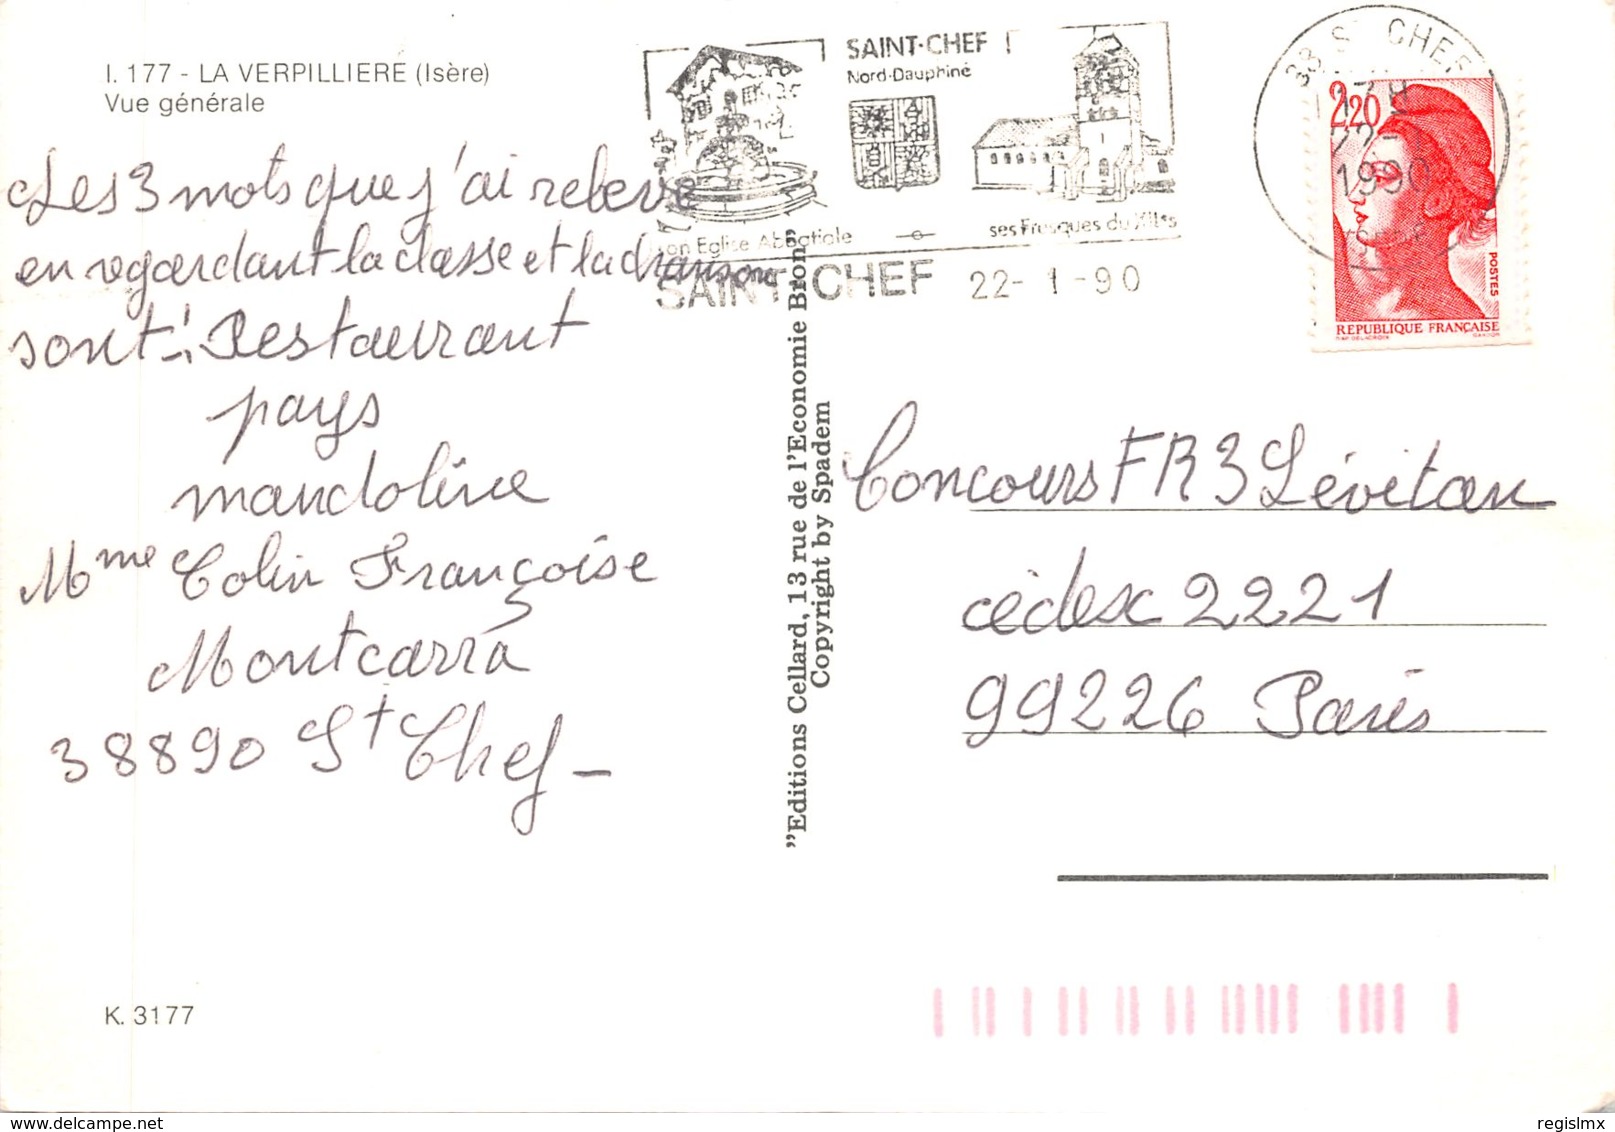 I. 177 - LA VERPILLIERE (Isère)
Vue générale
Les 3 mots que j'ai relevé
en regardant la classe et la chanson
sont : Restaurant
pays
mandoline
Mme Colin Françoise
Montcarra
38890 St Chef -
K. 3177
SAINT-CHEF
Nord-Dauphiné
son Eglise Abbatiale
ses Fresques du XIIes
SAINT-CHEF 22-1-90
38 ST CHEF
22-
1990
2,20
POSTES
REPUBLIQUE FRANÇAISE
"Editions Cellard, 13 rue de l'Economie Bron"
Copyright by Spadem
Concours FR3 Lévitan
cédesc 2221
99226 Paris
regislmx